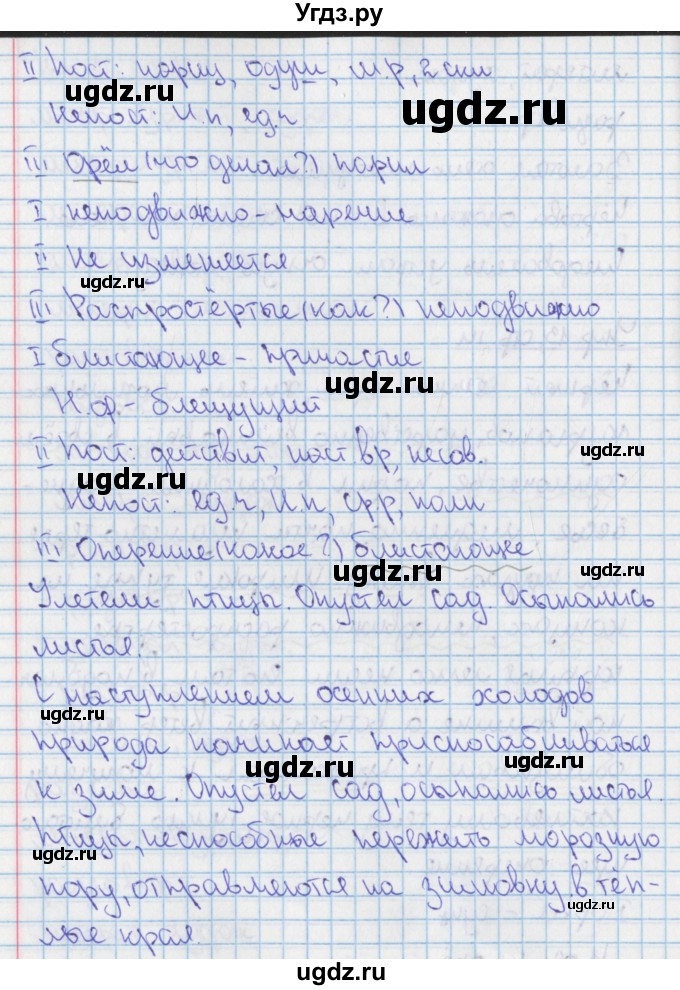 Угдз.ру
II Пост: нариц, одуш, м.р, 2 скл
ugdz.ru ugdz.ru
Непост: И.п, ед.ч
III Орёл (что делал?) парил
I неподвижно - наречие
II Не изменяется
ugdz.ru
III Распростёртые (как?) неподвижно
I блистающее - причастие
ugdz.ru
Н.ф. - блещущий
II Пост: действит, наст вр, несов.
ugdz.ru ugdz.ru
Непост: ед.ч, И.п, ср р, полн
III Оперение (какое?) блистающее
ugdz.ru ugdz.ru
Улетели птицы. Опустел сад. Осыпались
листья.
С наступлением осенних холодов
ugdz.ru
природа начинает приспосабливаться
ugdz.ru ugdz.ru
к зиме. Опустел сад, осыпались листья.
Птицы, неспособные пережить морозную
ugdz.ru
пору, отправляются на зимовку в тёп-
ugdz.ru
лые края.
ugdz.ru